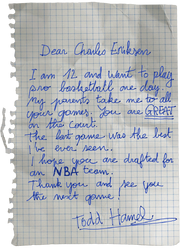 Dear Charles Erikson
I am 12 and want to play
pro basketball one day.
My parents take me to all
your games. You are GREAT
on the court.
The last game was the best
I've ever seen.
I hope you are drafted for
an NBA team.
Thank you and see you
the next game!
Todd Hamel